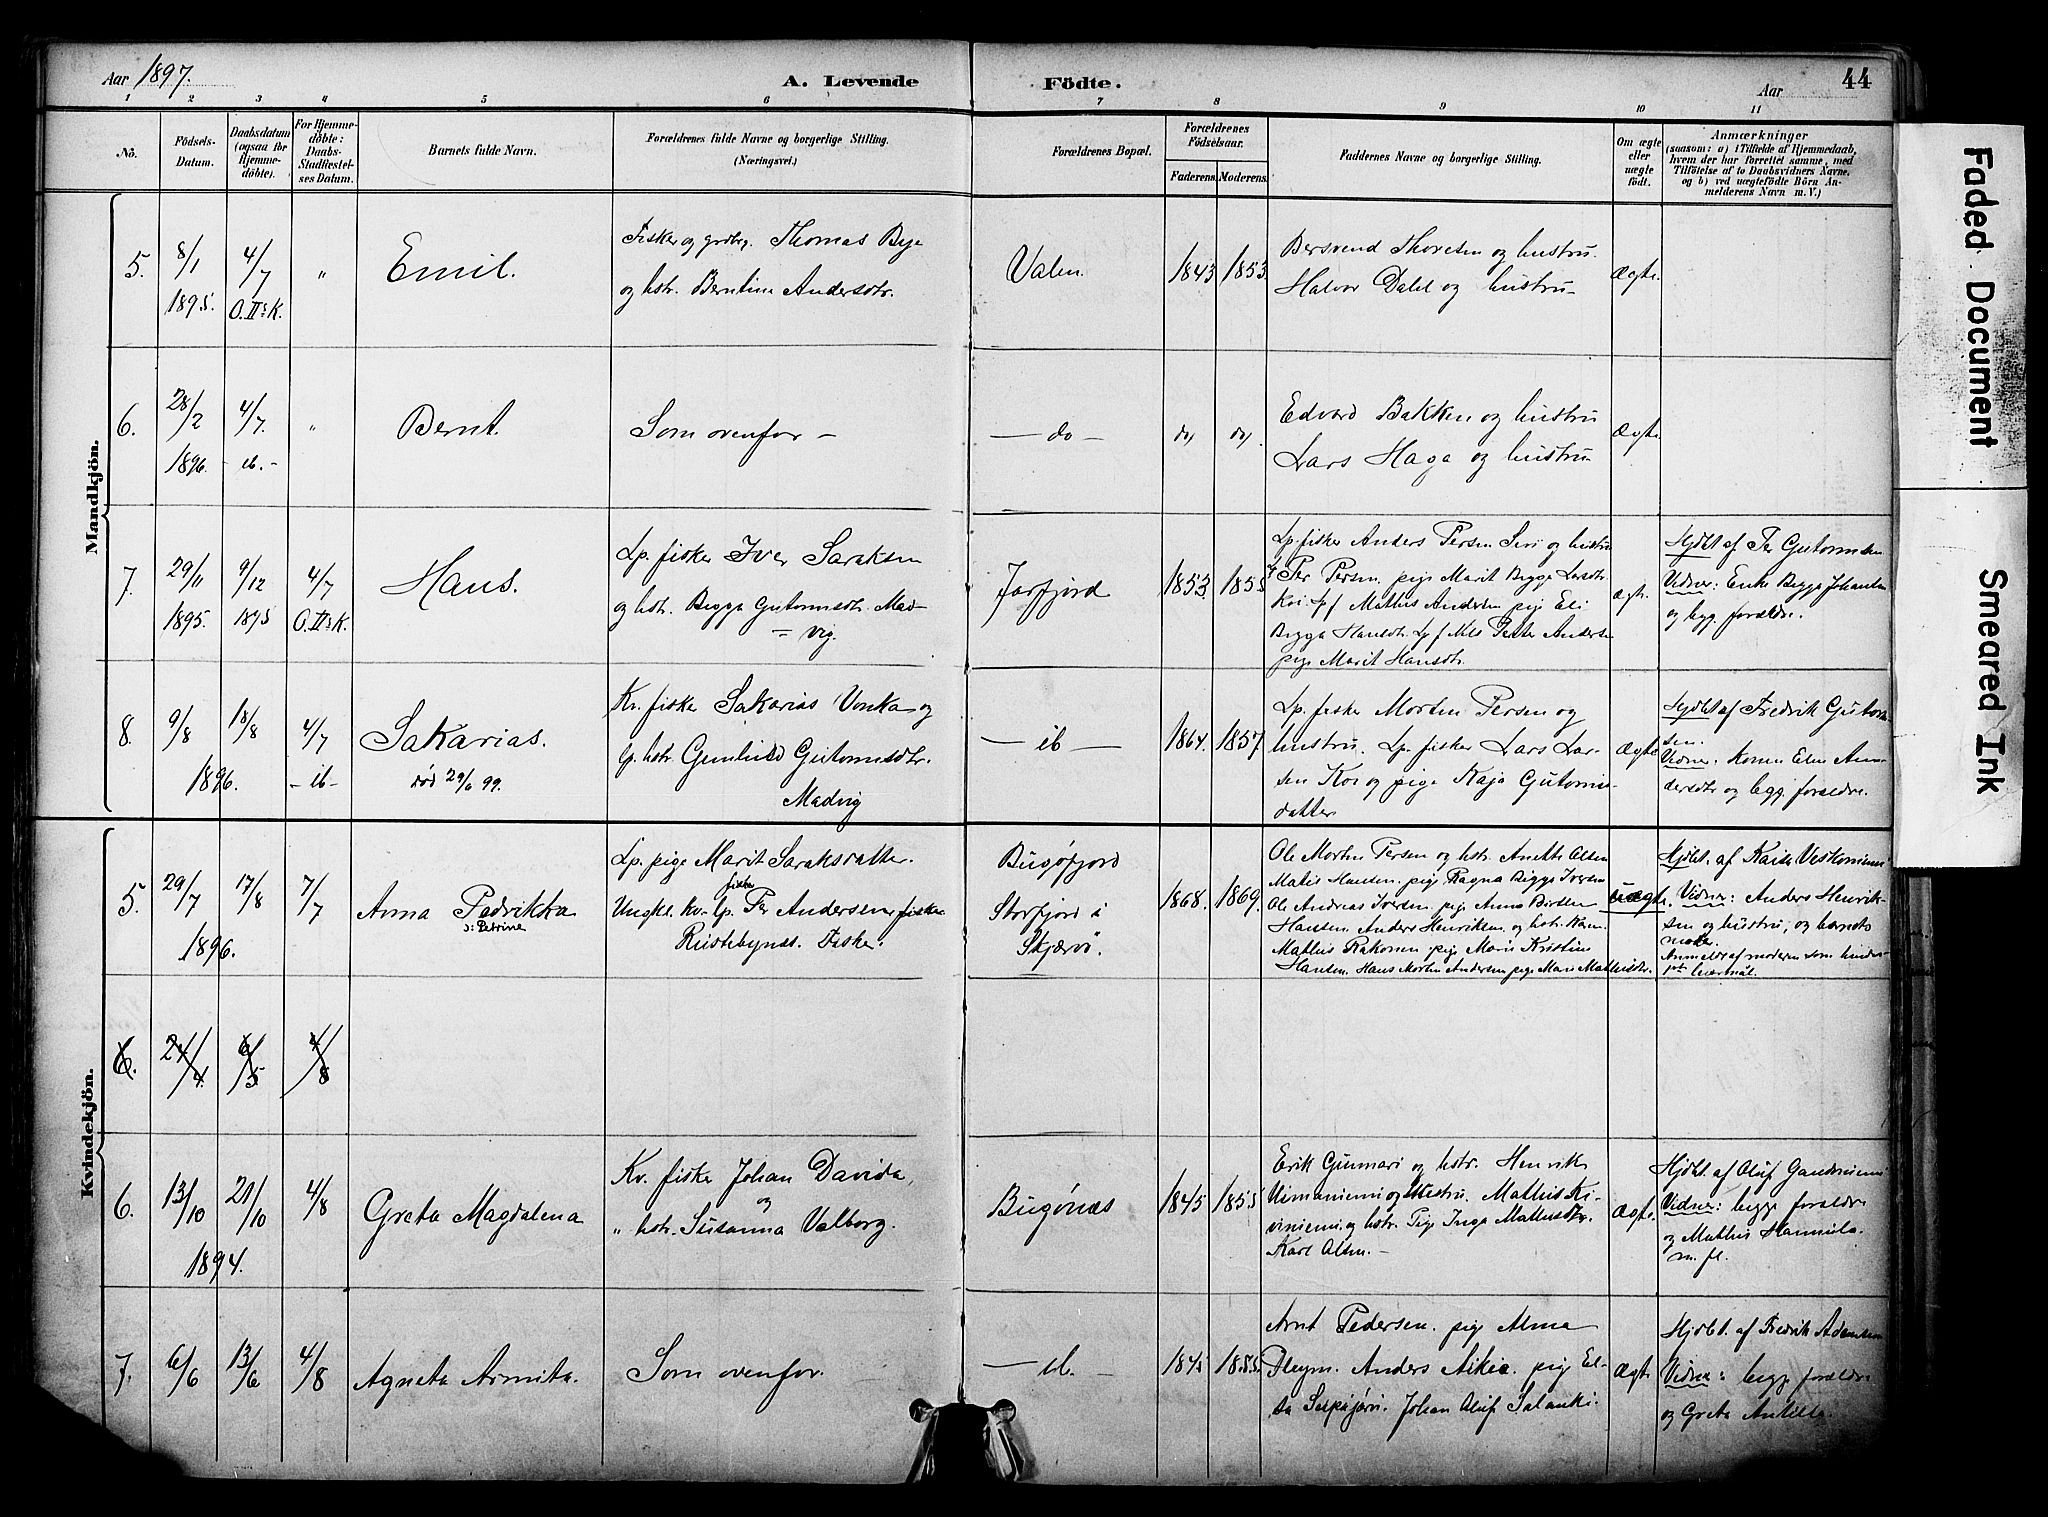 Aar 1897.
A. Levende
Födte.
Aar
44
1
2
3
4
5
6
7
8
9
10
11
No.
Födsels-
Datum.
Daabsdatum
(ogsaa for
Hjemme-
döbte).
For Hjemme-
döbte:
Daabs-
Stadfæstel-
ses Datum.
Barnets fulde Navn.
Forældrenes fulde Navne og borgerlige Stilling.
(Næringsvei.)
Forældrenes Bopæl.
Forældrenes
Födselsaar.
Faderens.
Moderens.
Faddernes Navne og borgerlige Stilling.
Om ægte
eller
uægte
födt.
Anmærkninger
(saasom: a) i Tilfælde af Hjemmedaab,
hvem der har forrettet samme, med
Tilföielse af to Daabsvidners Navne,
og b) ved uægtefödte Börn An-
melderens Navn m. V.)
Mandkjön.
5.
8/1
1895.
4/7
O. IIs K.
"
Emil.
Fisker og grdbr. Thomas Bye
og hstr. Berntine Andersdtr.
Valen.
1843
1853
Bersvend Thoresen og hustru.
Halvor Dahl og hustru-
Ægte.
6.
28/2
1896.
4/7.
- ib. -
"
Bernt.
Som ovenfor -
- do -
do,
do,
Edvard Bakken og hustru
Lars Haga og hustru
Ægte.
7.
29/11
1895.
9/12
1895
4/7
O. IIs K.
Hans.
Lp. fisker Iver Saraksen
og hstr. Begga Gutormsdtr. Mad-
= vig.
Jarfjord
1853
1855
Lp. fisker Anders Persen Siri og hustru
Per Persen. pige Marit Begga Larsdtr.
Koi. Lp f Mathis Andersen pige Eli
Begga Hansdtr. Lp f Nils Peter Andersen
pige Marit Hansdtr.
Ægte.
Hjdbt af Per Gutormsen
Vidner: Enke Begga Johansen
og begg. forældre.
8.
9/8
18/8
1896.
4/7
- ib -
Sakarias.
død 29/6 99.
Kv. fisker Sakarias Vonka og
lp. hstr. Gunhild Gutormsdtr.
Madvig
- ib -
1864.
1857
Lp. fisker Morten Persen og
hustru. Lp. fisker Lars Lar-
sen Koi og pige Kaja Gutorms-
datter
Ægte
Hjdbt af Fredrik Gutorm-
sen.
Vidner: Konen Elen An-
dersdtr og begg. forældre.
Kvindekjön.
5.
29/7
17/8
1896.
7/7
Anna Pedrikka
ɔ: Petrine
Lp. pige Marit Saraksdatter.
fisker
Ungkl. kv-lp. Per Andersen fisker
Rustebynes. Fisker.
Bugöfjord
Storfjord i
Skjærvö.
1868.
1869.
Ole Morten Persen og hstr. Anette Olsen
Matis Hansen. pige Ragna Bigga Iversen
Ole Andreas Iversen. pige Anna Birthe
Hansen Anders Henriksen og hstr. Karen
Mathis Rakonen pige Marie Kristine
Hansen. Hans Morten Andersen pige Mari Mathisdtr.
uægte.
Hjdbt. af Kaisa Veskoniemi
Vidner: Anders Henrik-
sen og hustru, og barnets
moder.
Anmeldt af moderen som hendes
1ste leiermål.
6.
24/4
6/5
4/8
6.
13/10
21/10
1894.
4/8
Greta Magdalena
Kv. fisker Johan Davida,
og
" hstr. Susanna Valborg.
Bugönæs
1845
1855
Erik Gunnari og hstr. Henrik
Uimaniemi og hustru. Mathis Ki-
viniemi og hstr. Pige Inga Mathisdtr.
Karl Olsen. -
Ægte.
Hjdbt. af Oluf Gandniemi
Vidner: begge forældre
og Mathis Hannula.
m. fl.
7.
6/6
13/6
4/8
Agneta Armita.
Som ovenfor.
- ib. -
1845
1855.
Arnt Pedersen. pige Alma
Pleym. Anders Aikio. pige El-
sa Seipäjärvi. Johan Oluf Salanki.
Ægt.
Hjdbt. af Fredrik Adamsen
Vidner: begge forældre
og Greta Antilla.
Faded Document
Smeared Ink